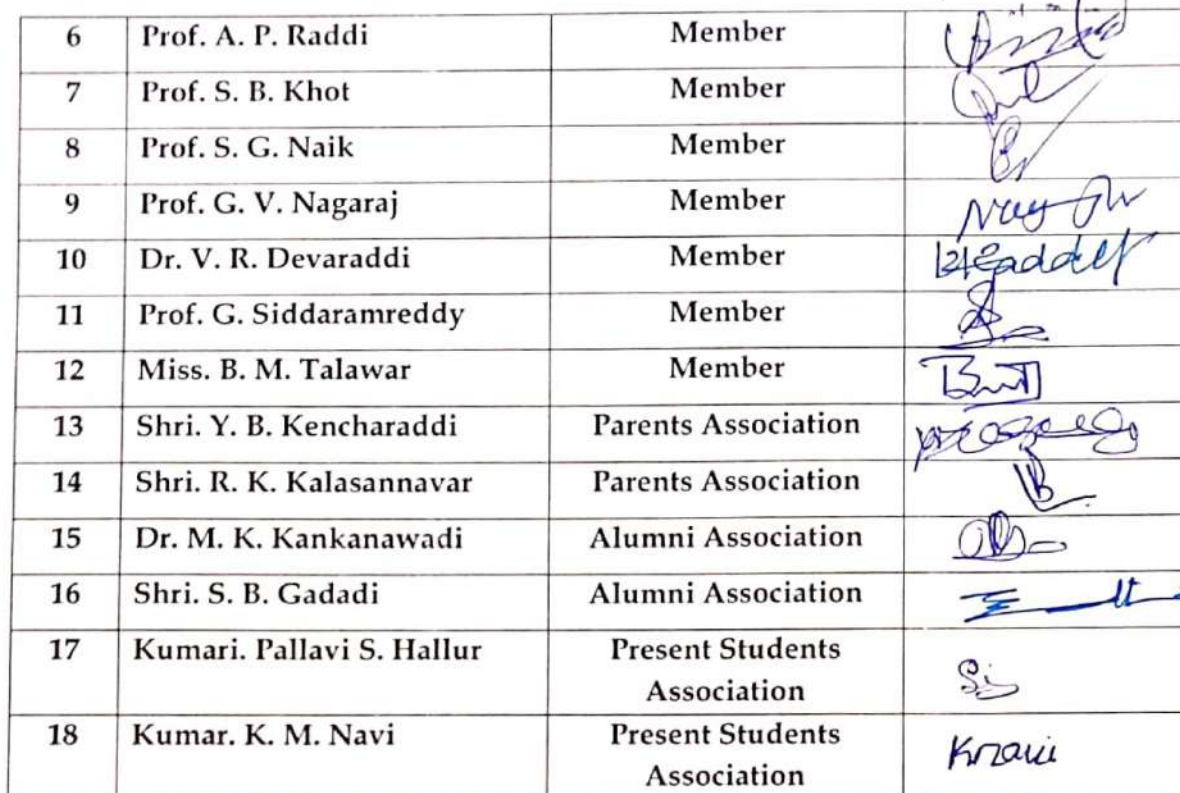 6 Prof. A. P. Raddi Member
7 Prof. S. B. Khot Member
8 Prof. S. G. Naik Member
9 Prof. G. V. Nagaraj Member
10 Dr. V. R. Devaraddi Member
11 Prof. G. Siddaramreddy Member
12 Miss. B. M. Talawar Member
13 Shri. Y. B. Kencharaddi Parents Association
14 Shri. R. K. Kalasannavar Parents Association
15 Dr. M. K. Kankanawadi Alumni Association
16 Shri. S. B. Gadadi Alumni Association
17 Kumari. Pallavi S. Hallur Present Students
Association
18 Kumar. K. M. Navi Present Students
Association